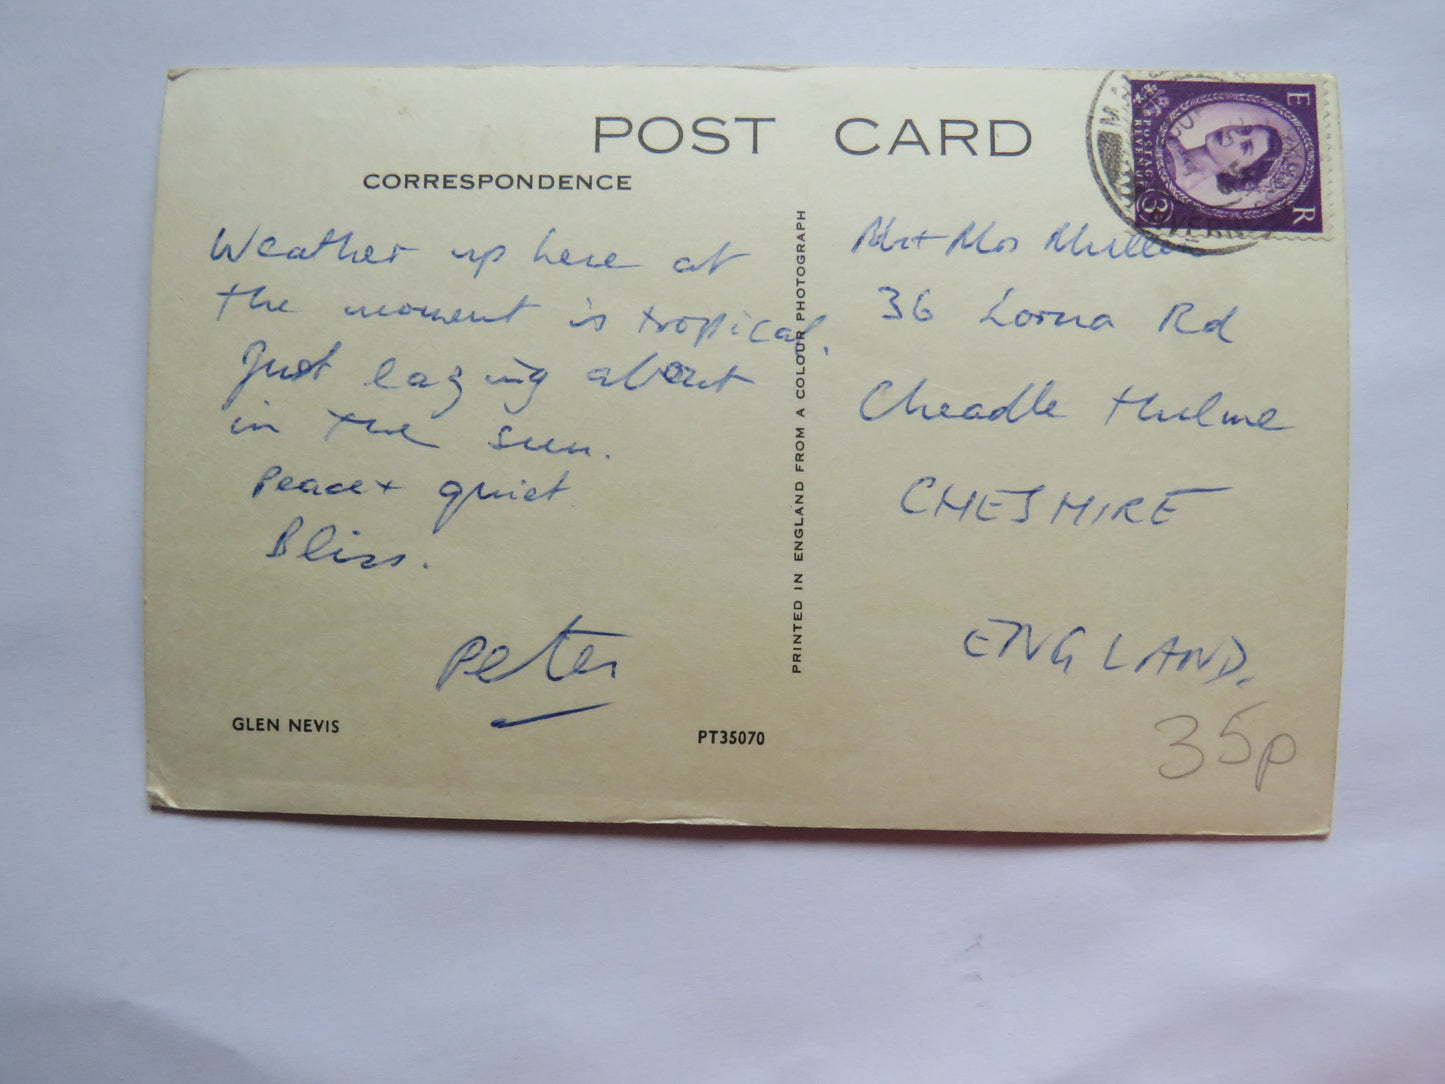 POST CARD
CORRESPONDENCE
Weather up here at
the moment is tropical.
Just lazying about
in the sun.
Peace + quiet
Bliss.
Peter
GLEN NEVIS
PT35070
PRINTED IN ENGLAND FROM A COLOUR PHOTOGRAPH
Mr + Mrs
36 Lorna Rd
Cheadle Hulme
CHESHIRE
ENGLAND.
35p
E R
POSTAGE
REVENUE
3